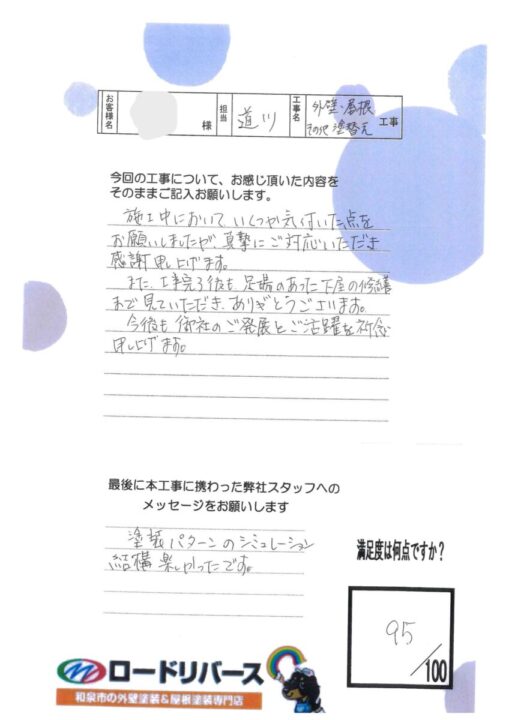 お客様名 様 担当 道川 工事名 外壁・屋根 その他 塗替え 工事
今回の工事について、お感じ頂いた内容を
そのままご記入お願いします。
施工中において いくつか気付いた点を
お願いしましたが、真摯にご対応いただき
感謝申し上げます。
また、工事完了後も 足場のあった下屋の修繕
まで見ていただき、ありがとうございます。
今後も 御社のご発展とご活躍を祈念
申し上げます。
最後に本工事に携わった弊社スタッフへの
メッセージをお願いします
塗装パターンのシミュレーション
結構楽しかったです。
満足度は何点ですか?
95
/100
ロードリバース
和泉市の外壁塗装&屋根塗装専門店